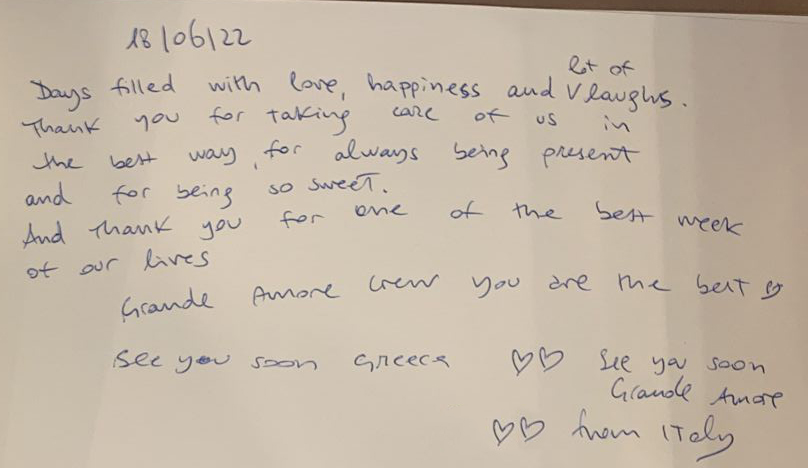 18/06/22
Days filled with love, happiness and lot of laughs.
Thank you for taking care of us in
the best way, for always being present
and for being so sweet.
And thank you for one of the best week
of our lives
Grande Amore crew you are the best
See you soon Greece ♡♡ See you soon
Grande Amore
♡♡ from ITaly